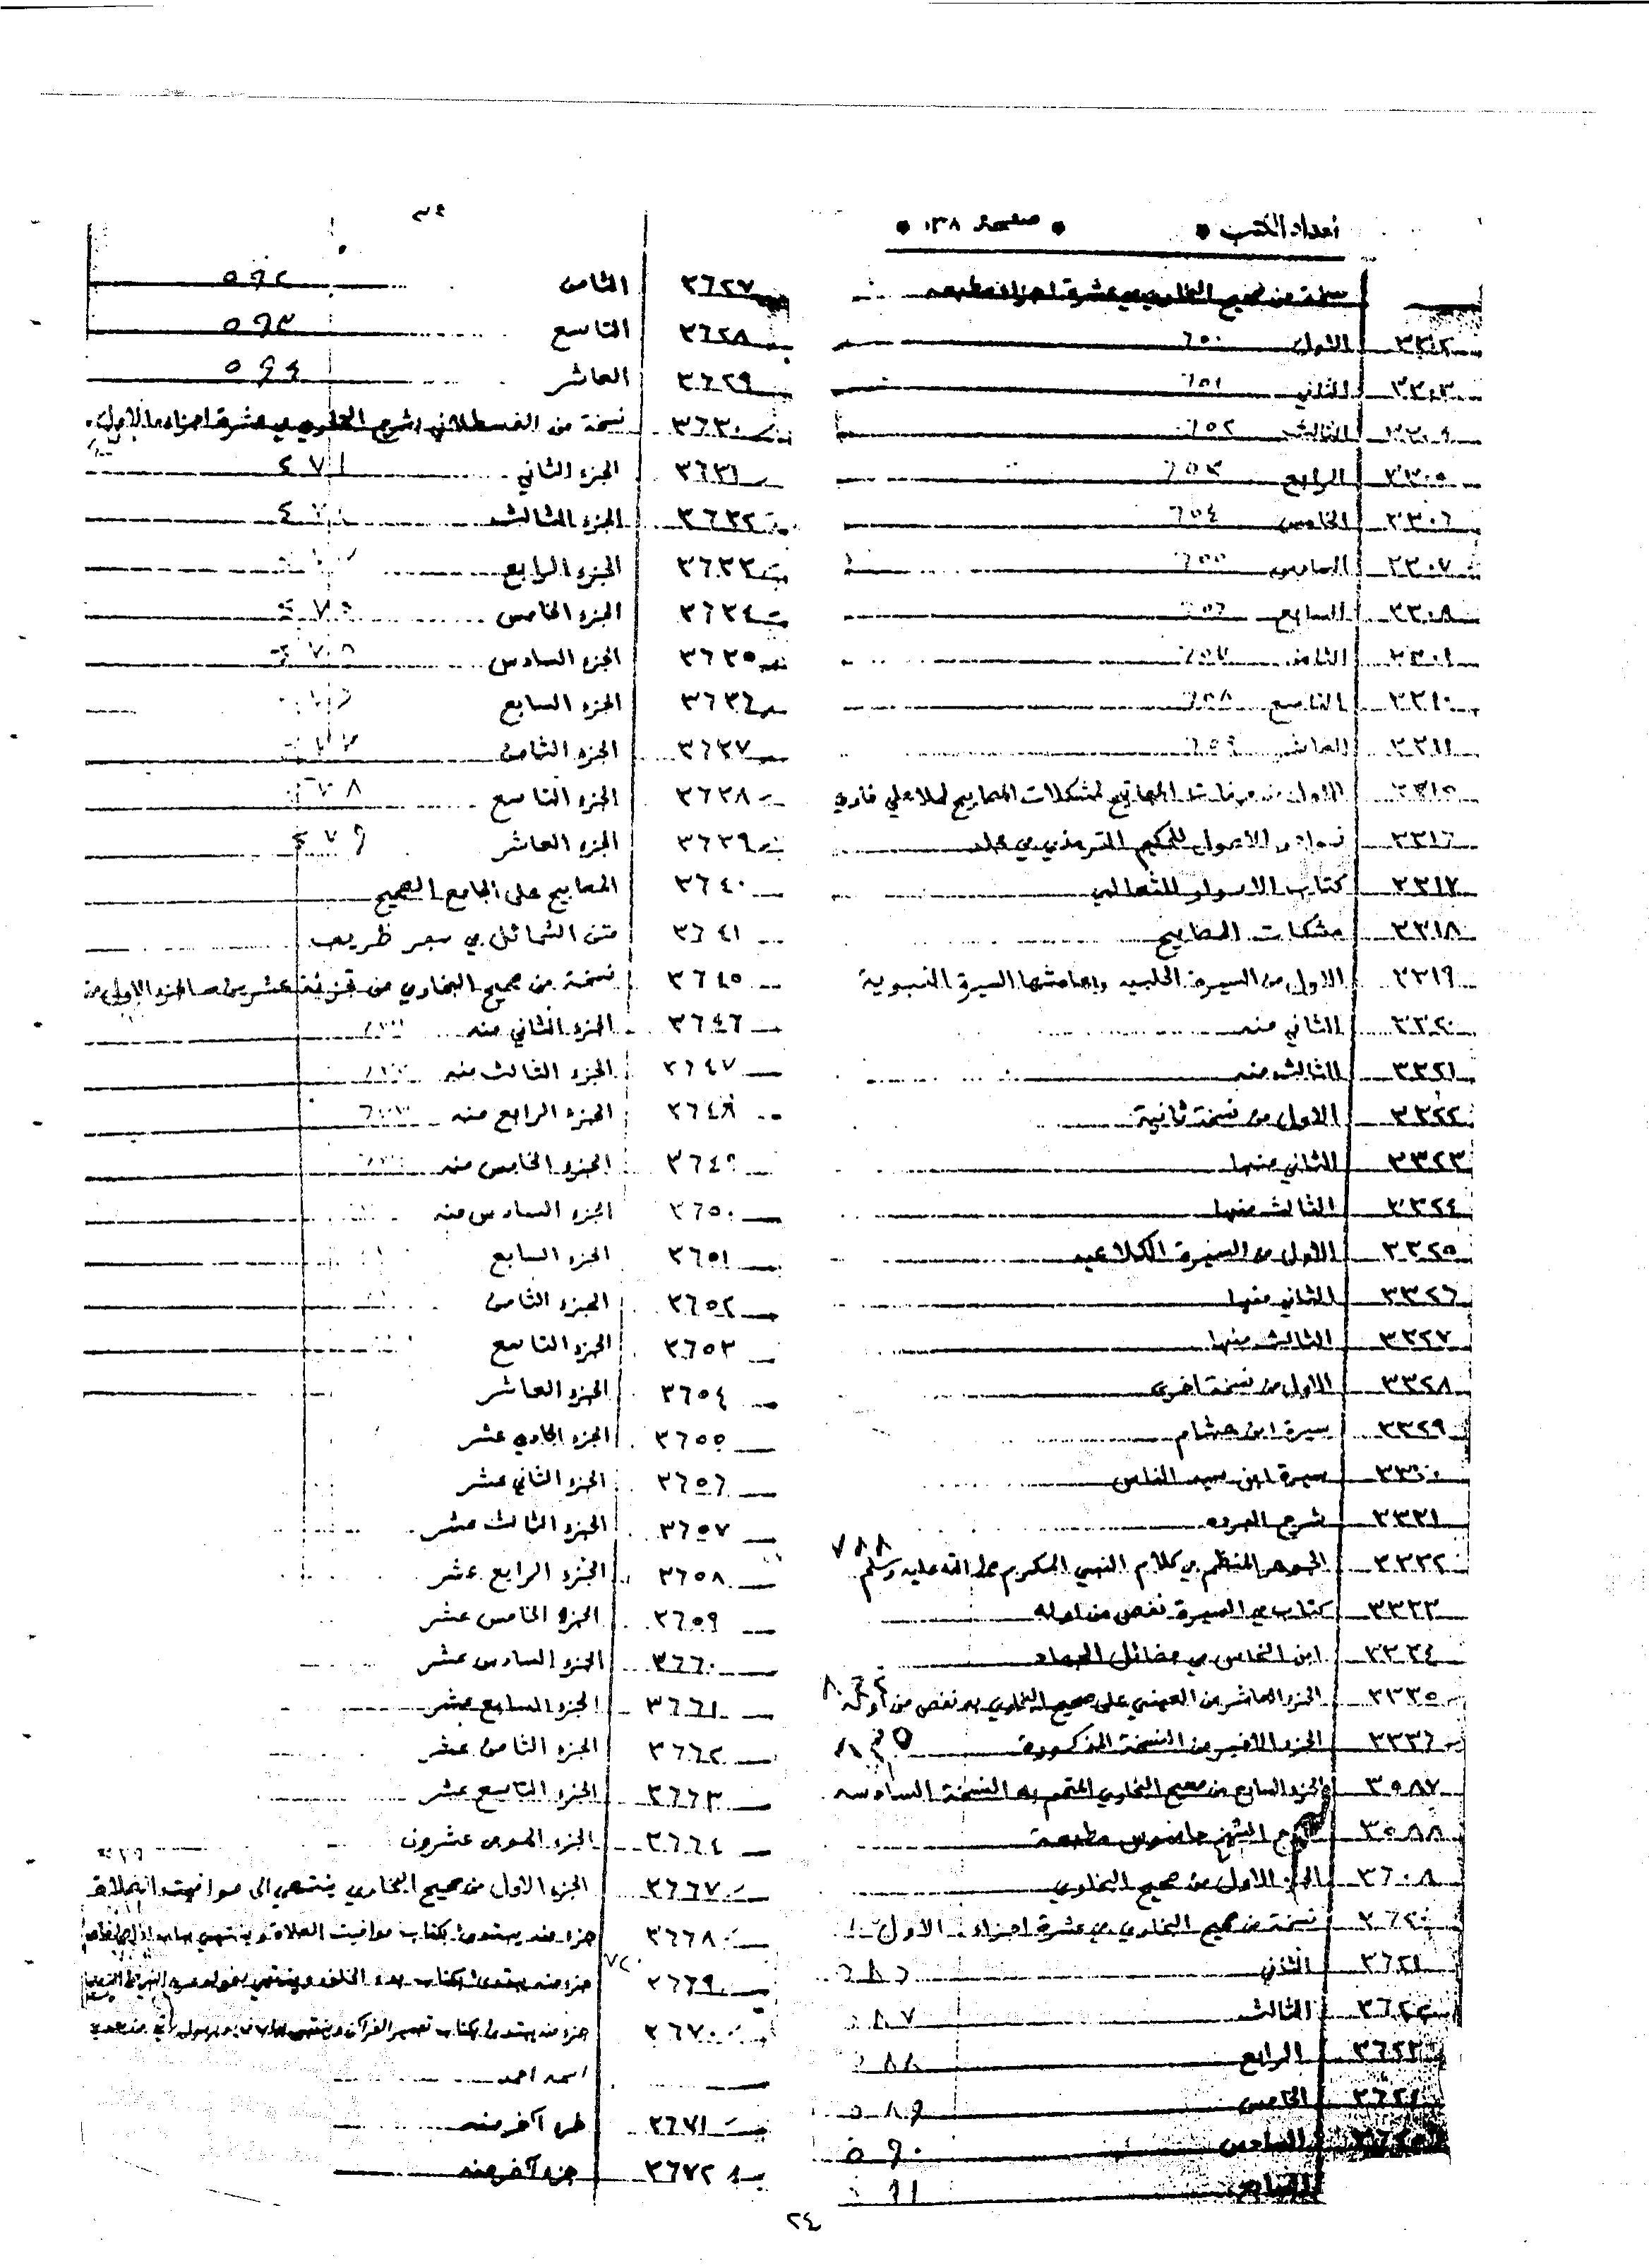 ٣٤
أعداد الكتب * * صفحة ١٣٨ *
نسخة من صحيح البخاري في عشرة اجزاء مطبعه
٣٣٠٢ الاول ٦٥٠
٣٣٠٣ الثاني ٦٥١
٣٣٠٤ الثالث ٦٥٢
٣٣٠٥ الرابع ٦٥٣
٣٣٠٦ الخامس ٦٥٤
٣٣٠٧ السادس ٦٥٥
٣٣٠٨ السابع ٦٥٦
٣٣٠٩ الثامن ٦٥٧
٣٣١٠ التاسع ٦٥٨
٣٣١١ العاشر ٦٥٩
٣٣١٥ الاول من مرقات المفاتيح لمشكلات المصابيح لملا علي قاري
٣٣١٦ نوادر الاصول للحكيم الترمذي في مجلد
٣٣١٧ كتاب الانوار للثعالبي
٣٣١٨ مشكات المصابيح
٣٣١٩ الاول من السيرة الحلبيه وبهامشها السيرة النبوية
٣٣٢٠ الثاني منه
٣٣٢١ الثالث منه
٣٣٢٢ الاول من نسخة ثانية
٣٣٢٣ الثاني منها
٣٣٢٤ الثالث منها
٣٣٢٥ الاول من السيرة الكلاعيه
٣٣٢٦ الثاني منها
٣٣٢٧ الثالث منها
٣٣٢٨ الاول من نسخة اخرى
٣٣٢٩ سيرة ابن هشام
٣٣٣٠ سيرة ابن سيد الناس
٣٣٣١ شرح البرده
٣٣٣٢ الجوهر المنظم في كلام النبي المكرم صلى الله عليه وسلم ٧٨٨
٣٣٣٣ كتاب في السيرة نقص من اوله
٣٣٣٤ ابن النحاس في فضائل الجهاد
٣٣٣٥ الجزء العاشر من العيني على صحيح البخاري به نقص من أوله
٣٣٣٦ الجزء الاخير من النسخة المذكورة
٣٥٨٧ الجزء السابع من صحيح البخاري المتمم به النسخة السادسه
٣٥٨٨ الشيخ جاسوس مطبعة
٣٦٠٨ الجزء الاول من صحيح البخاري
٣٦٢٠ نسخة من صحيح البخاري في عشرة اجزاء الاول
٣٦٢١ الثاني ٥٨٦
٣٦٢٢ الثالث ٥٨٧
٣٦٢٣ الرابع ٥٨٨
٣٦٢٤ الخامس ٥٨٩
٣٦٢٥ السادس ٥٩٠
السابع ٥٩١
٣٦٢٧ الثامن ٥٩٢
٣٦٢٨ التاسع ٥٩٣
٣٦٢٩ العاشر ٥٩٤
٣٦٣٠ نسخة من القسطلاني شرح البخاري في عشرة اجزاء الاول
٣٦٣١ الجزء الثاني ٤٧١
٣٦٣٢ الجزء الثالث
٣٦٣٣ الجزء الرابع
٣٦٣٤ الجزء الخامس
٣٦٣٥ الجزء السادس
٣٦٣٦ الجزء السابع
٣٦٣٧ الجزء الثامن
٣٦٣٨ الجزء التاسع ٤٧٨
٣٦٣٩ الجزء العاشر ٤٧٩
٣٦٤٠ المصابيح على الجامع الصحيح
٣٦٤١ متن الشمائل في سفر ظريف
٣٦٤٥ نسخة من صحيح البخاري من تجزئة عشرين الجزء الاول من
٣٦٤٦ الجزء الثاني منه
٣٦٤٧ الجزء الثالث منه
٣٦٤٨ الجزء الرابع منه
٣٦٤٩ الجزء الخامس منه
٣٦٥٠ الجزء السادس منه
٣٦٥١ الجزء السابع
٣٦٥٢ الجزء الثامن
٣٦٥٣ الجزء التاسع
٣٦٥٤ الجزء العاشر
٣٦٥٥ الجزء الحادي عشر
٣٦٥٦ الجزء الثاني عشر
٣٦٥٧ الجزء الثالث عشر
٣٦٥٨ الجزء الرابع عشر
٣٦٥٩ الجزء الخامس عشر
٣٦٦٠ الجزء السادس عشر
٣٦٦١ الجزء السابع عشر
٣٦٦٢ الجزء الثامن عشر
٣٦٦٣ الجزء التاسع عشر
٣٦٦٤ الجزء الموفى عشرون
٣٦٦٧ الجزء الاول من صحيح البخاري ينتهي الى مواقيت الصلاة
٣٦٦٨ جزء منه يبتدئ بكتاب مواقيت الصلاة وينتهي بباب
٣٦٦٩ جزء منه يبتدئ بكتاب بدء الخلق وينتهي
٣٦٧٠ جزء منه يبتدئ بكتاب تفسير القرآن وينتهي برسول يأتي من بعدي
اسمه احمد
٣٦٧١ طرف آخر منه
٣٦٧٢ جزء آخر منه
٢٤